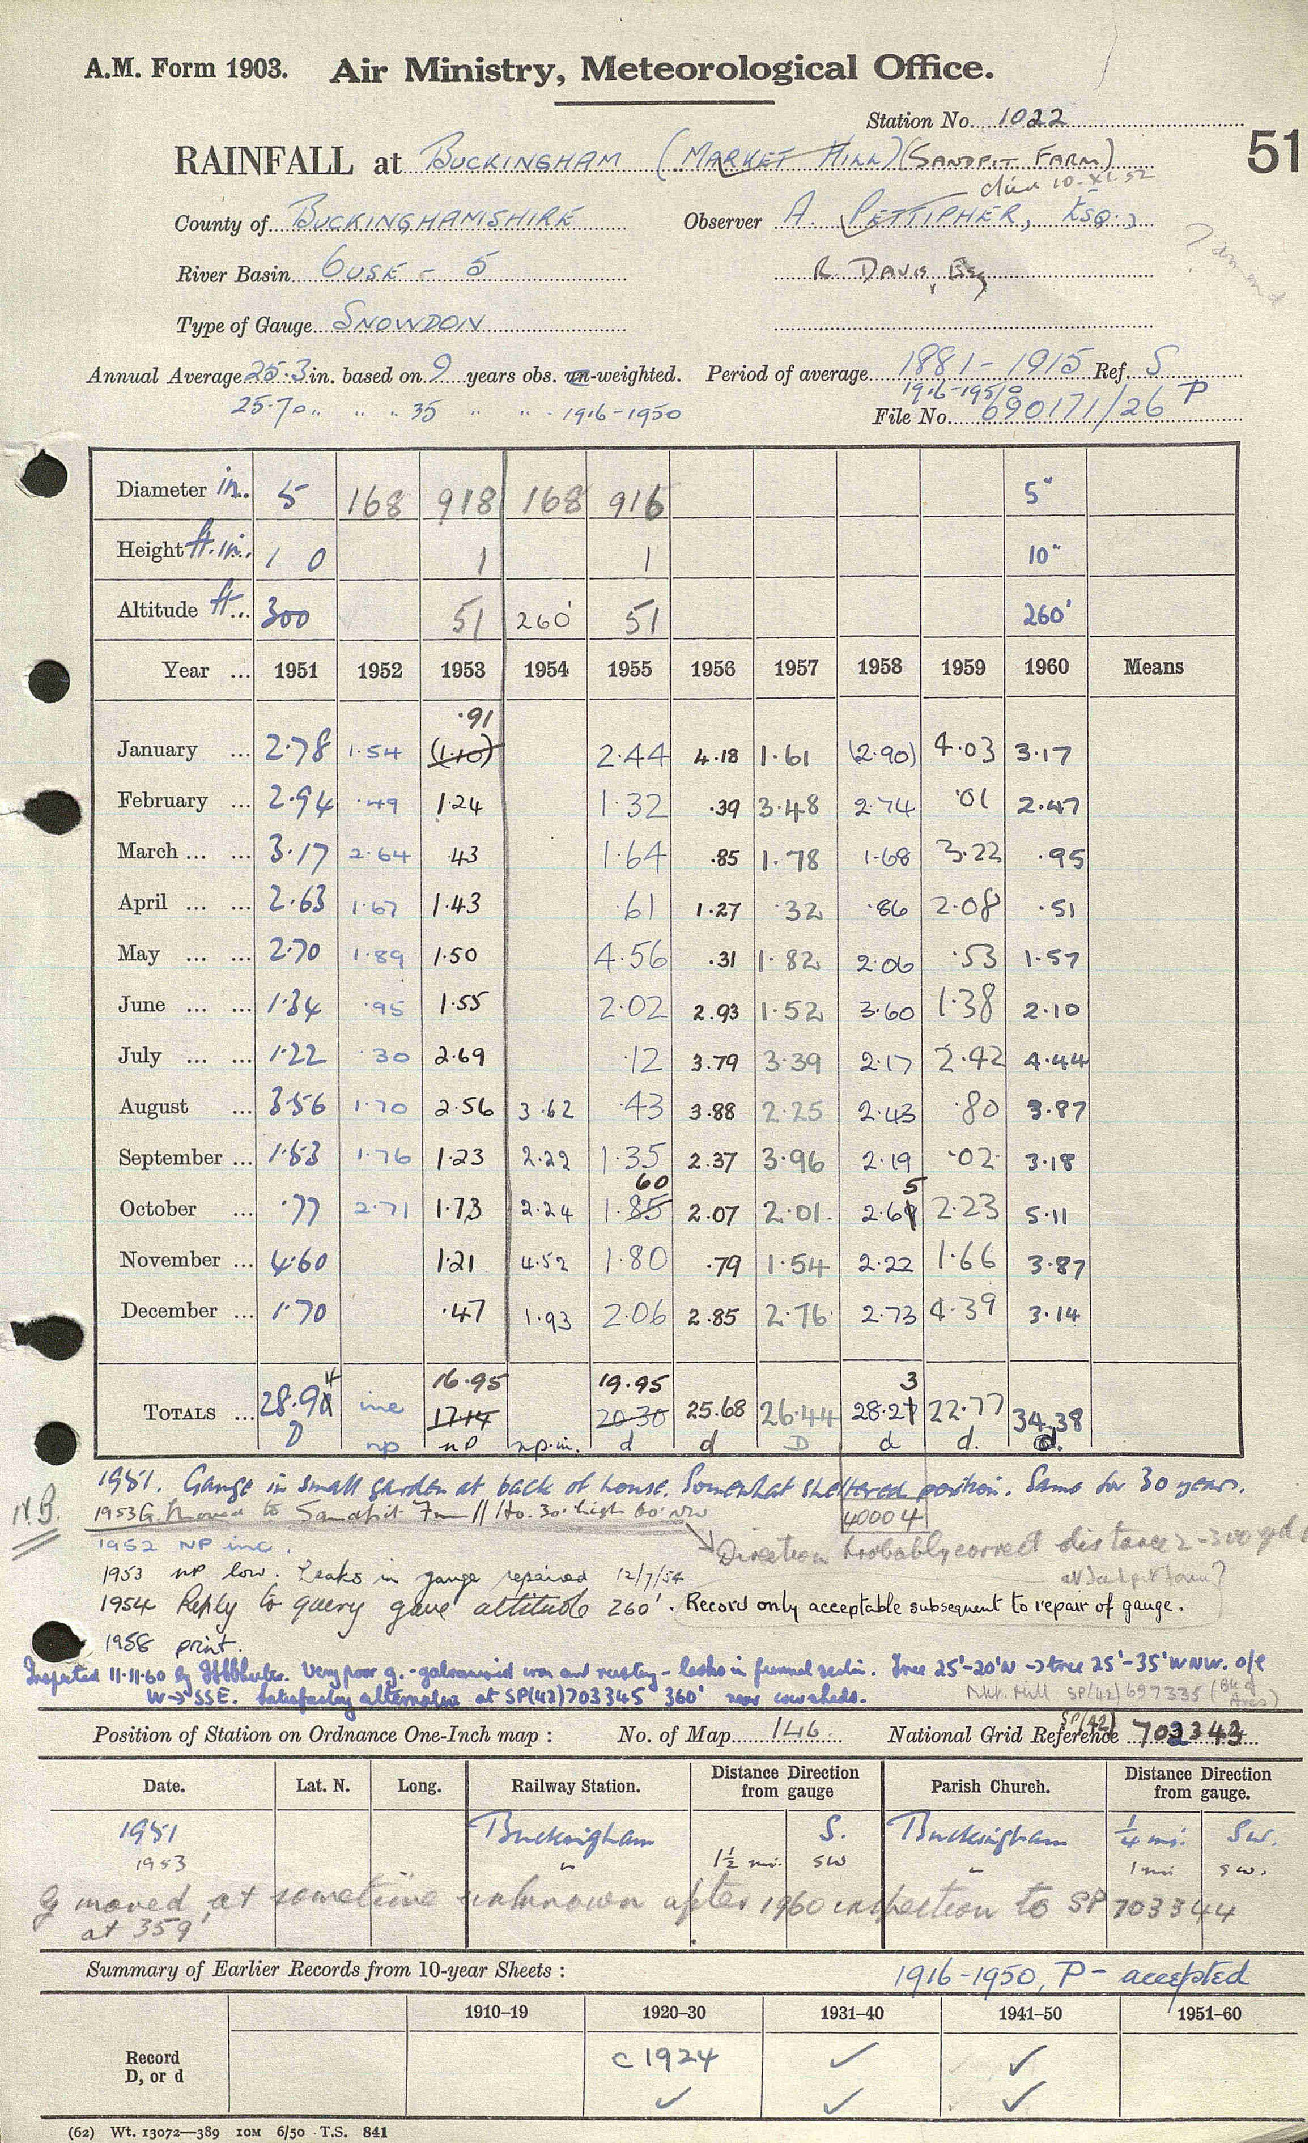 A.M. Form 1903. Air Ministry, Meteorological Office.
Station No. 1022
51
RAINFALL at BUCKINGHAM (MARKET HILL) (SANDPIT FARM)
died 10.XI.52
County of BUCKINGHAMSHIRE Observer A. PETTIPHER, ESQ.,
River Basin OUSE - 5 R DAVIS, Esq
Type of Gauge SNOWDON
Annual Average 25.3 in. based on 9 years obs. un-weighted. Period of average 1881-1915 Ref S
1916-1950 P
25.70 " " " 35 " " " 1916-1950 File No. 690171/26
Diameter in. 5 168 918 168 916 5"
Height ft. in. 1 0 1 1 10"
Altitude ft... 300 51 260' 51 260'
Year ... 1951 1952 1953 1954 1955 1956 1957 1958 1959 1960 Means
.91
January ... 2.78 1.54 (1.10) 2.44 4.18 1.61 (2.90) 4.03 3.17
February ... 2.94 .49 1.24 1.32 .39 3.48 2.74 .01 2.47
March ... ... 3.17 2.64 .43 1.64 .85 1.78 1.68 3.22 .95
April ... ... 2.63 1.67 1.43 .61 1.27 .32 .86 2.08 .51
May ... ... 2.70 1.89 1.50 4.56 .31 1.82 2.06 .53 1.57
June ... ... 1.34 .95 1.55 2.02 2.93 1.52 3.60 1.38 2.10
July ... ... 1.22 .30 2.69 .12 3.79 3.39 2.17 2.42 4.44
August ... 3.56 1.70 2.56 3.62 .43 3.88 2.25 2.43 .80 3.87
September ... 1.53 1.76 1.23 2.22 1.35 2.37 3.96 2.19 .02 3.18
60 5
October ... .77 2.71 1.73 2.24 1.85 2.07 2.01 2.69 2.23 5.11
November ... 4.60 1.21 4.52 1.80 .79 1.54 2.22 1.66 3.87
December ... 1.70 .47 1.93 2.06 2.85 2.76 2.73 4.39 3.14
4 16.95 19.95 3
TOTALS ... 28.90 inc 17.14 20.30 25.68 26.44 28.27 22.77 34.38
D np np np.in. d d D d d. d.
1951. Gauge in small garden at back of house. Somewhat sheltered position. Same for 30 years.
N.B. 1953 G. moved to Sandpit Fm // Ho. 30' high 60' NW
40004
1952 NP inc. Direction probably correct distance 2-300 yds
1953 np low. Leaks in gauge repaired 12/7/54 at Sandpit Farm?
1954 Reply to query gave altitude 260'. Record only acceptable subsequent to repair of gauge.
1958 print.
Inspected 11.11.60 by Very poor g. - galvanised iron and rusty - leaks in funnel Tree 25'-20'N → tree 25'-35' WNW. o/e
W → SSE. Satisfactory alternative at SP(42)703345 360' near cowsheds. Mkt. Hill SP(42)697335
Position of Station on Ordnance One-Inch map : No. of Map 146. National Grid Reference SP(42) 702343
Date. Lat. N. Long. Railway Station. Distance Direction from gauge Parish Church. Distance Direction from gauge.
1951 Buckingham S. Buckingham ¼ mi. SW.
1953 " 1½ mi. SW " 1 mi SW.
G moved at sometime unknown after 1960 inspection to SP 703344
at 359'
Summary of Earlier Records from 10-year Sheets : 1916-1950, P - accepted
1910–19 1920–30 1931–40 1941–50 1951–60
Record D, or d c 1924 ✓ ✓
✓ ✓ ✓
(62) Wt. 13072—389 10M 6/50 T.S. 841